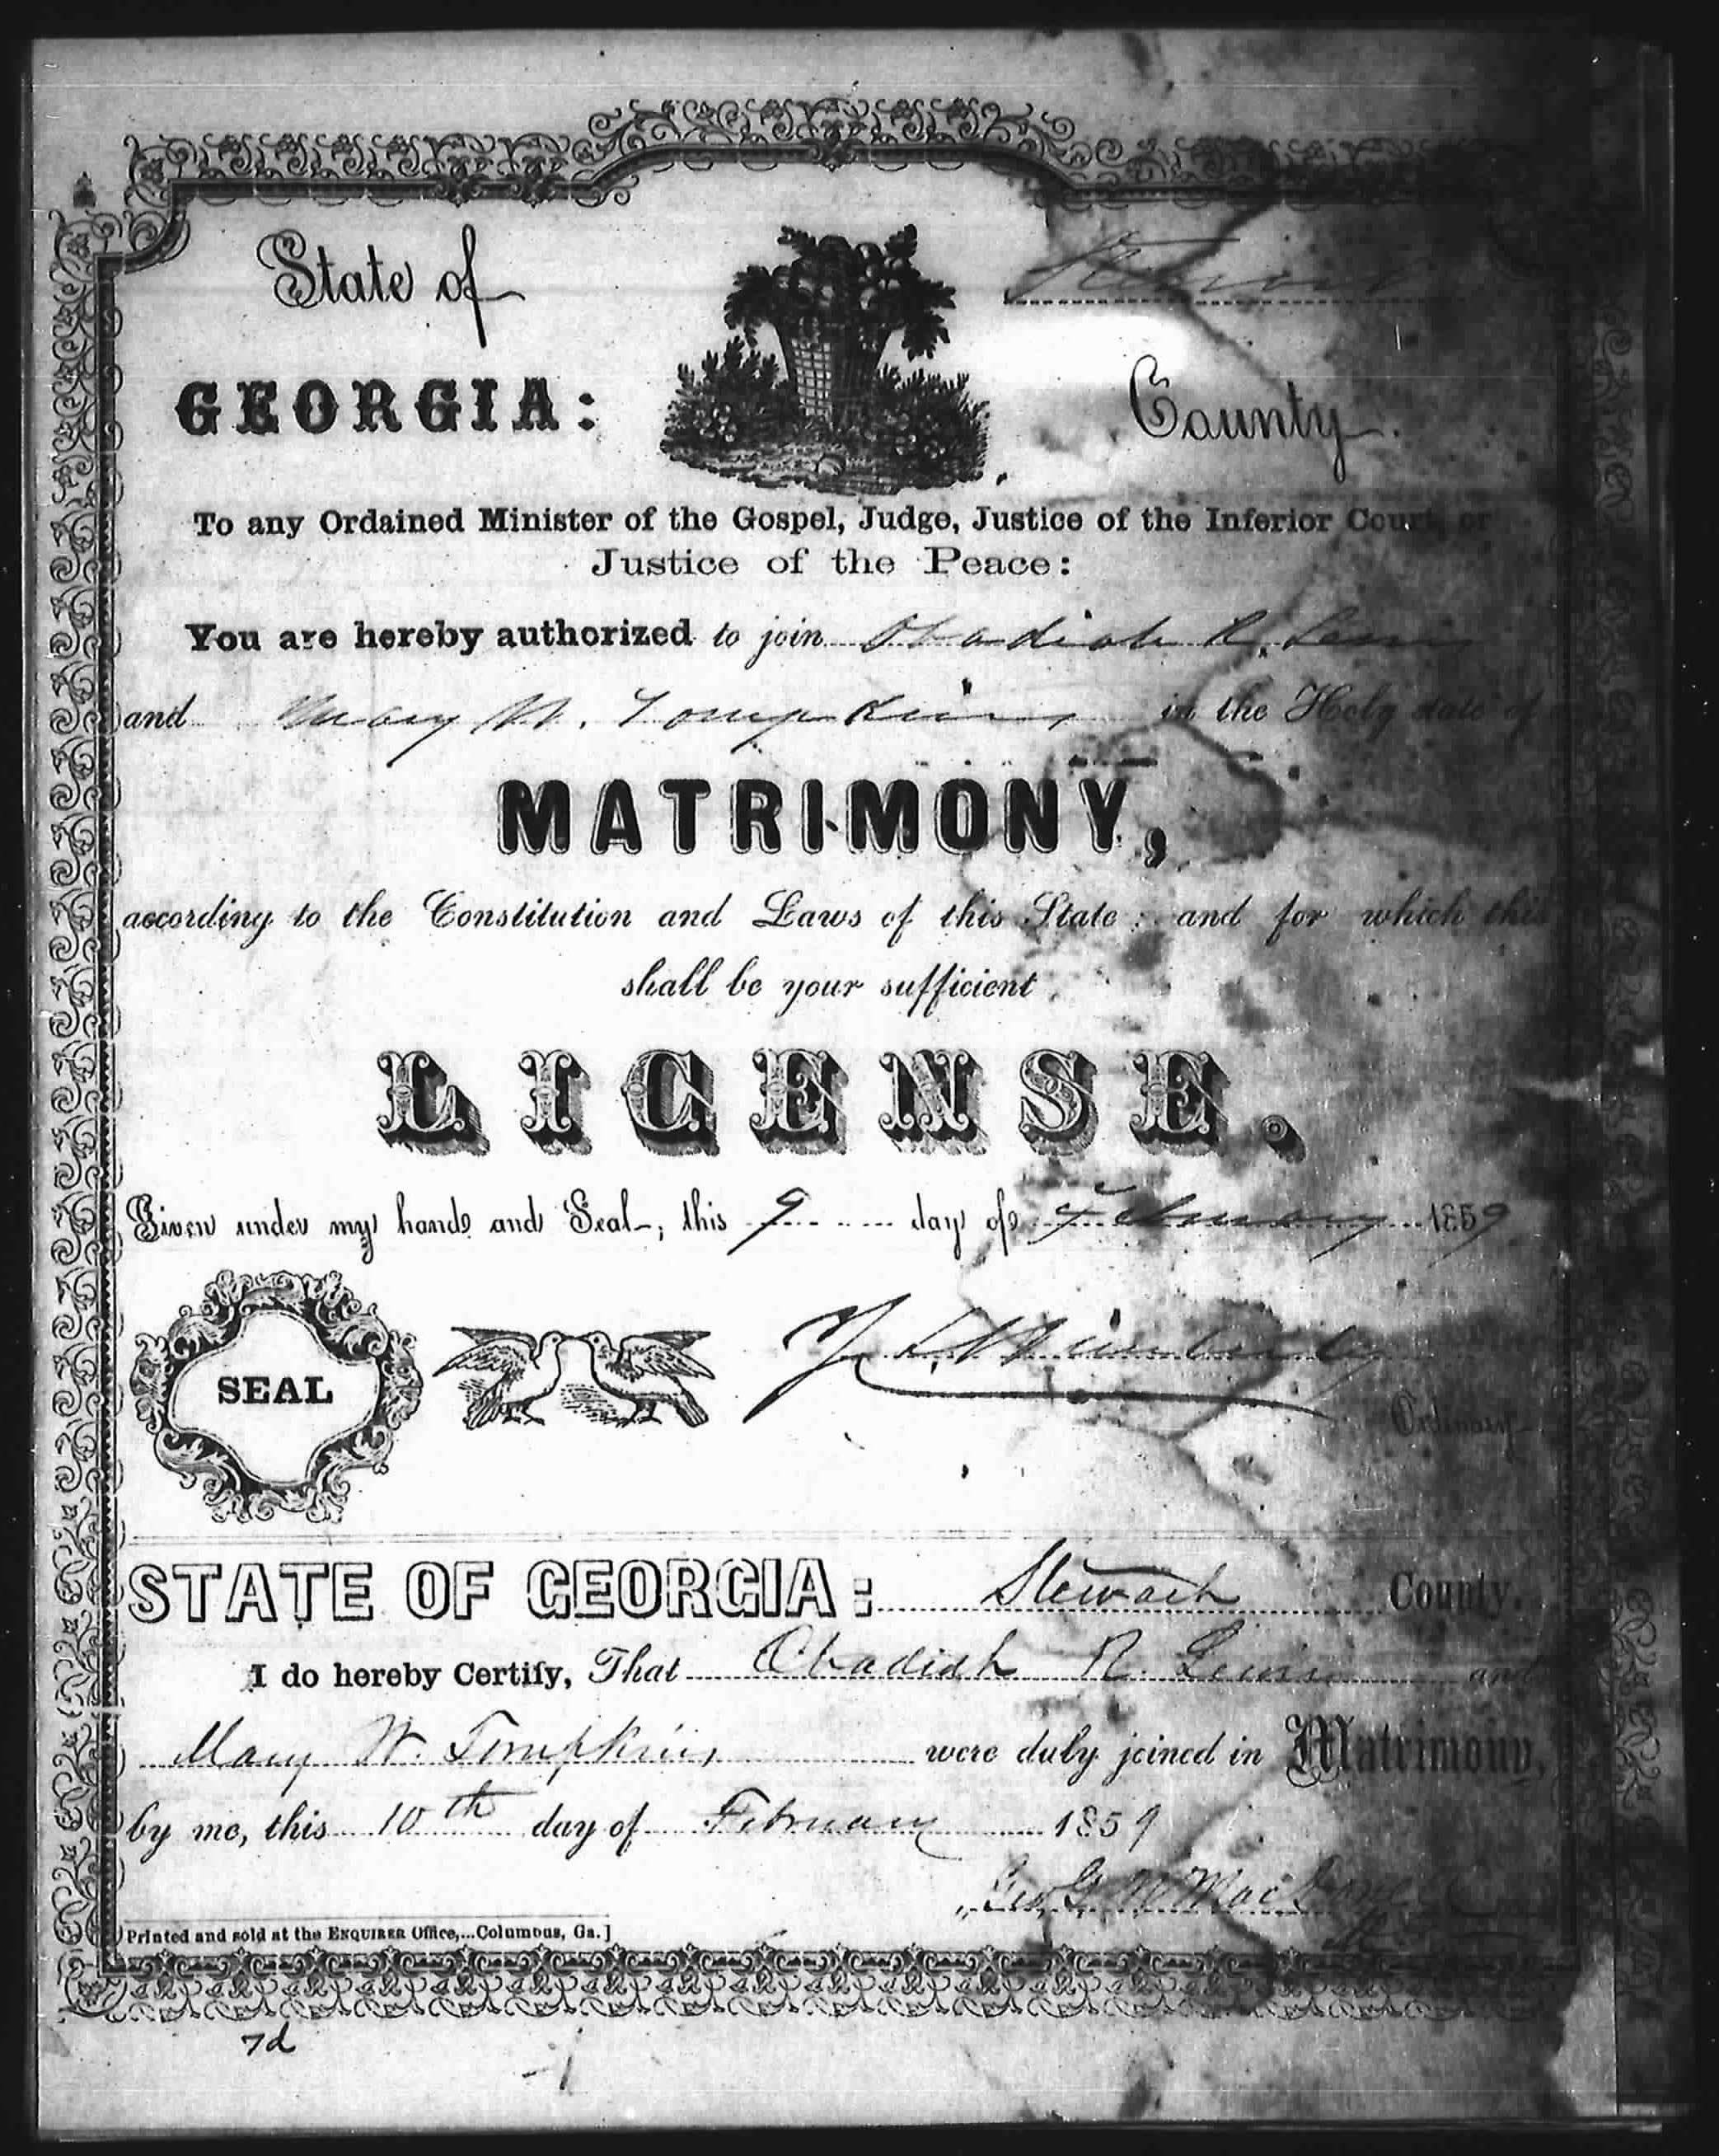 State of
Stewart
GEORGIA:
County.
To any Ordained Minister of the Gospel, Judge, Justice of the Inferior Court, or
Justice of the Peace:
You are hereby authorized to join Obadiah R. Lewis
and Mary W. Tompkins in the Holy state of
MATRIMONY,
according to the Constitution and Laws of this State; and for which this
shall be your sufficient
LICENSE.
Given under my hand and Seal, this 9 day of February 1859
SEAL
J. L. Wimberly
Ordinary
STATE OF GEORGIA: Stewart County.
I do hereby Certify, That Obadiah R. Lewis and
Mary W. Tompkins were duly joined in Matrimony,
by me, this 10th day of February 1859
Geo. G. N. MacDonell
Printed and sold at the ENQUIRER Office,...Columbus, Ga.]
7d